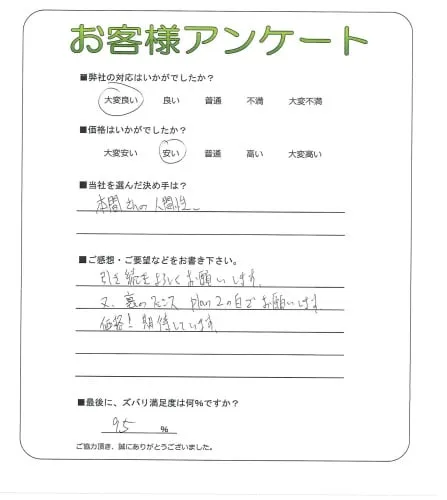 お客様アンケート
■弊社の対応はいかがでしたか？
大変良い 良い 普通 不満 大変不満
■価格はいかがでしたか？
大変安い 安い 普通 高い 大変高い
■当社を選んだ決め手は？
本間さんの人間性。
■ご感想・ご要望などをお書き下さい。
引き続きよろしくお願いします。
又、裏のフェンス plan2の白でお願いします。
価格！期待しています。
■最後に、ズバリ満足度は何%ですか？
95 %
ご協力頂き、誠にありがとうございました。